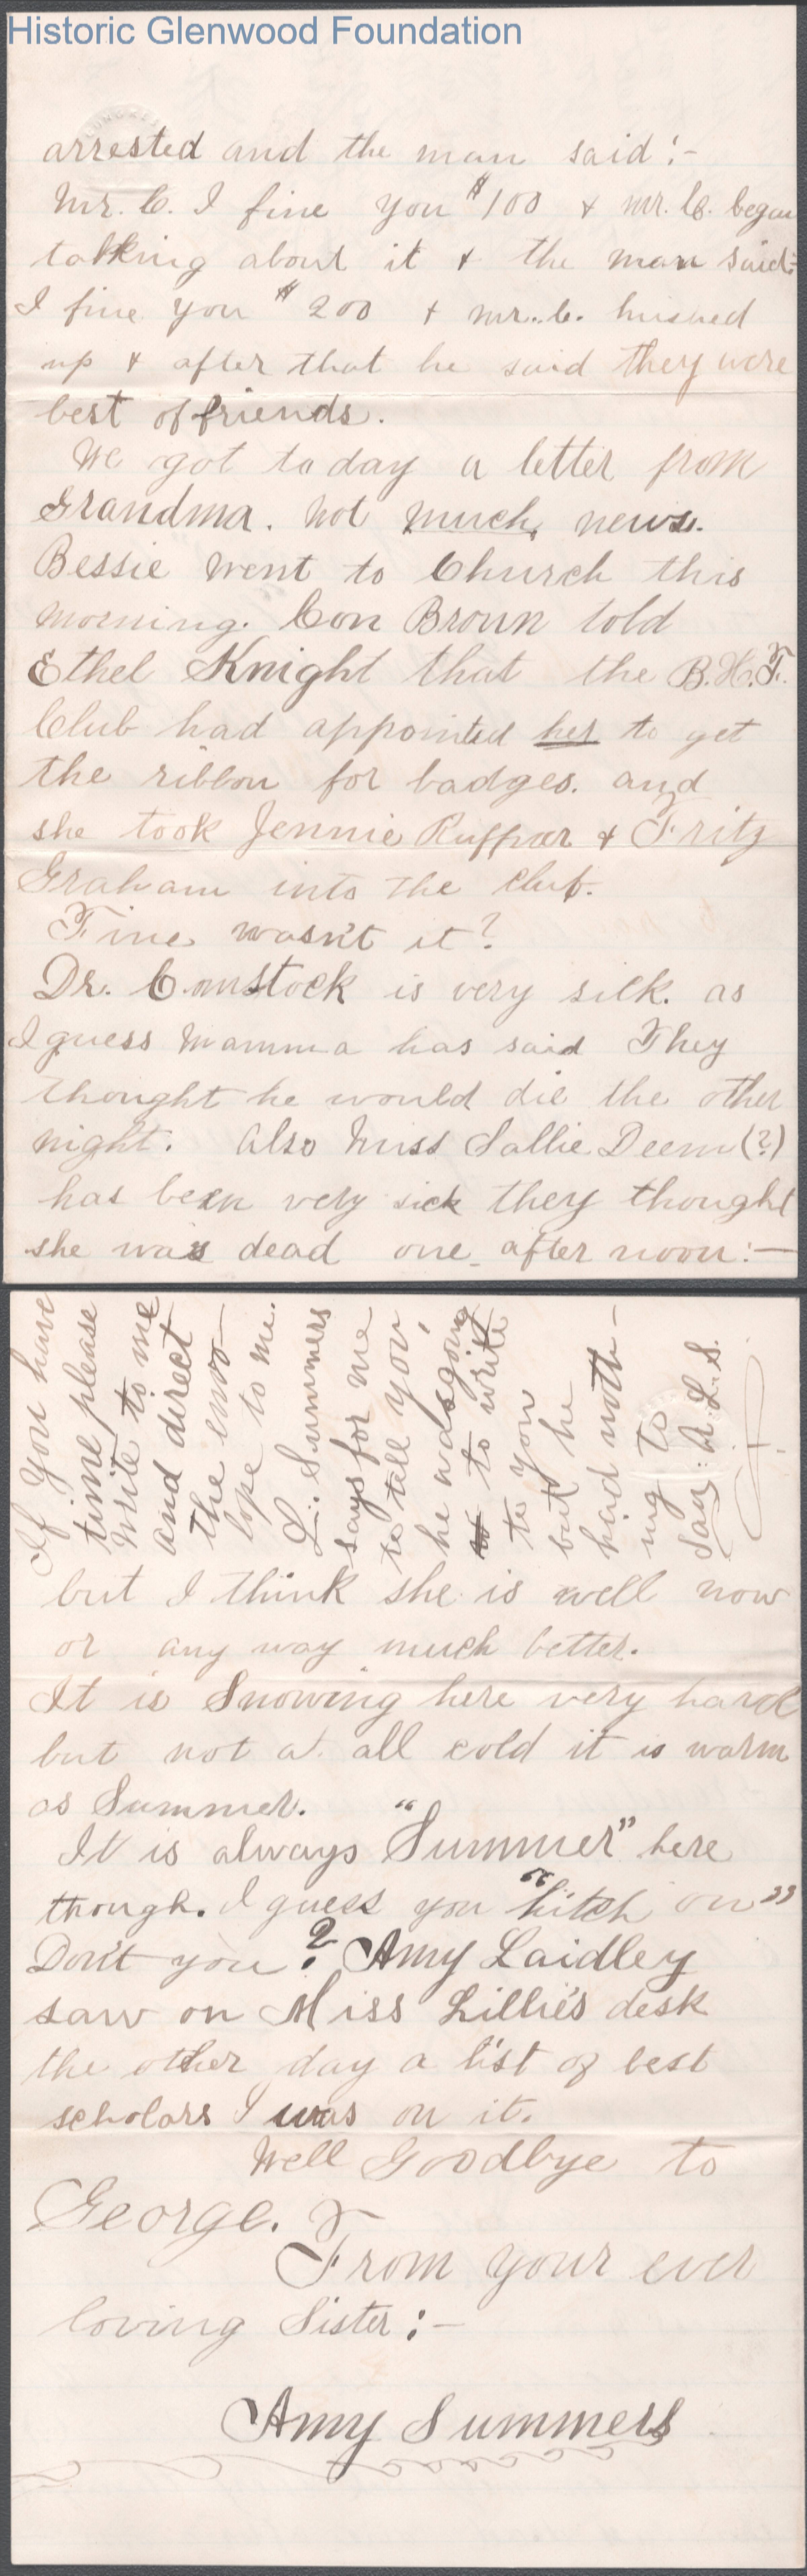 Historic Glenwood Foundation
arrested and the man said :-
Mr. C. I fine you $100 & Mr. C. began
talking about it & the man said:
I fine you $200 & Mr. C. hushed
up & after that he said they were
best of friends.
We got today a letter from
Grandma. Not much, news.
Bessie went to Church this
morning. Con Broun told
Ethel Knight that the B.H.T.
Club had appointed her to get
the ribbon for badges. and
she took Jennie Ruffner & Fritz
Graham into the club.
Fine wasn't it?
Dr. Comstock is very sick. as
I guess Mamma has said They
thought he would die the other
night. Also Miss Sallie Deem(?)
has been very sick they thought
she was dead one afternoon:-
If you have
time please
write to me
and direct
the enve-
lope to me.
L. Summers
says for me
to tell you,
he was going
to write
to you
but he
had noth-
ing to
say. A.L.S.
but I think she is well now
or any way much better.
It is Snowing here very hard
but not at all cold it is warm
as Summer.
It is always "Summer" here
though. I guess you "hitch on"
Don't you? Amy Laidley
saw on Miss Lillie's desk
the other day a list of best
scholars I was on it.
Well Goodbye to
George.
From your ever
loving Sister :-
Amy Summers